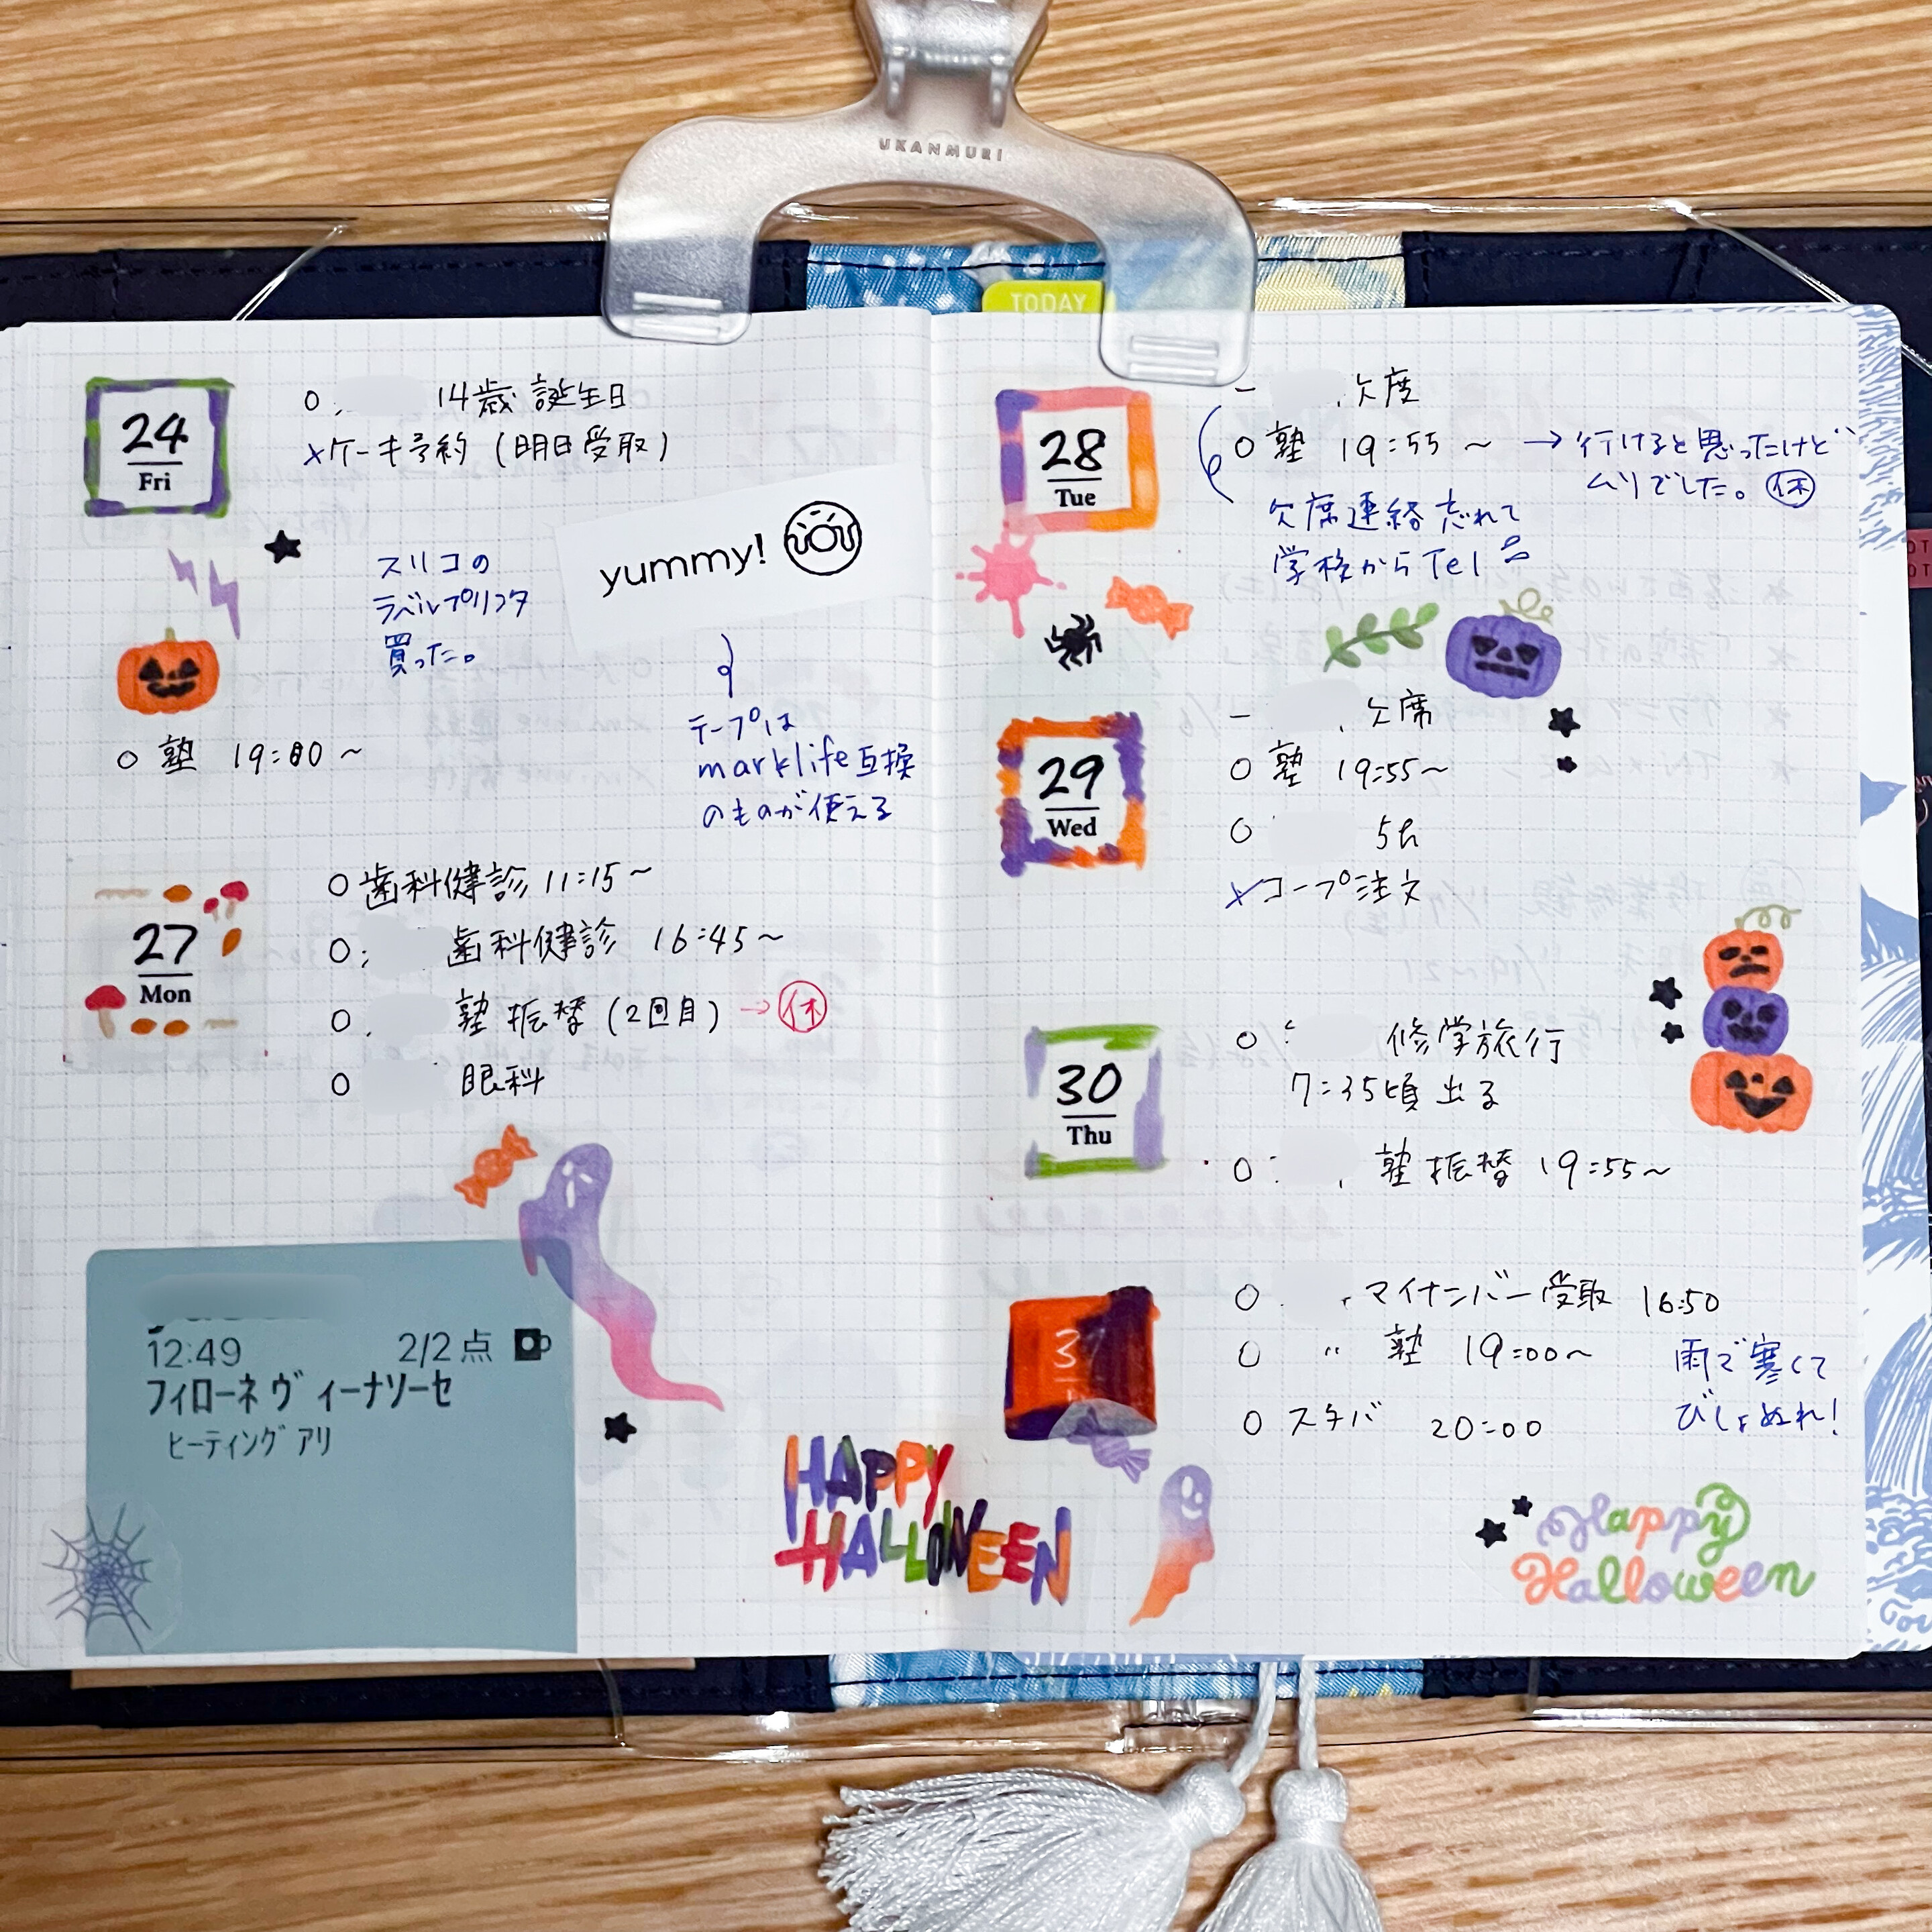 UKANMURI
TODAY
24
Fri
14歳 誕生日
×ケーキ予約 (明日受取)
スリコの
ラベルプリンタ
買った。
yummy!
テープは
marklife互換
のものが使える
○ 塾 19:00~
27
Mon
○歯科健診 11:15~
○: 歯科健診 16:45~
○. 塾振替 (2回目) → 休
○ 眼科
12:49 2/2 点
フィローネ ヴィーナソーセ
ヒーティングアリ
HAPPY
HALLOWEEN
28
Tue
- . 欠度
○ 塾 19:55~ → 行けると思ったけど
ムリでした。 休
欠席連絡忘れて
学校からTel
29
Wed
- . 欠席
○ 塾 19:55~
○ 5h
×コープ注文
30
Thu
○ 修学旅行
7:35頃 出る
○: . 塾振替 19:55~
3
○ . マイナンバー受取 16:50
○ 〃 塾 19:00~
○ スタバ 20:00
雨で寒くて
びしょぬれ!
Happy
Halloween